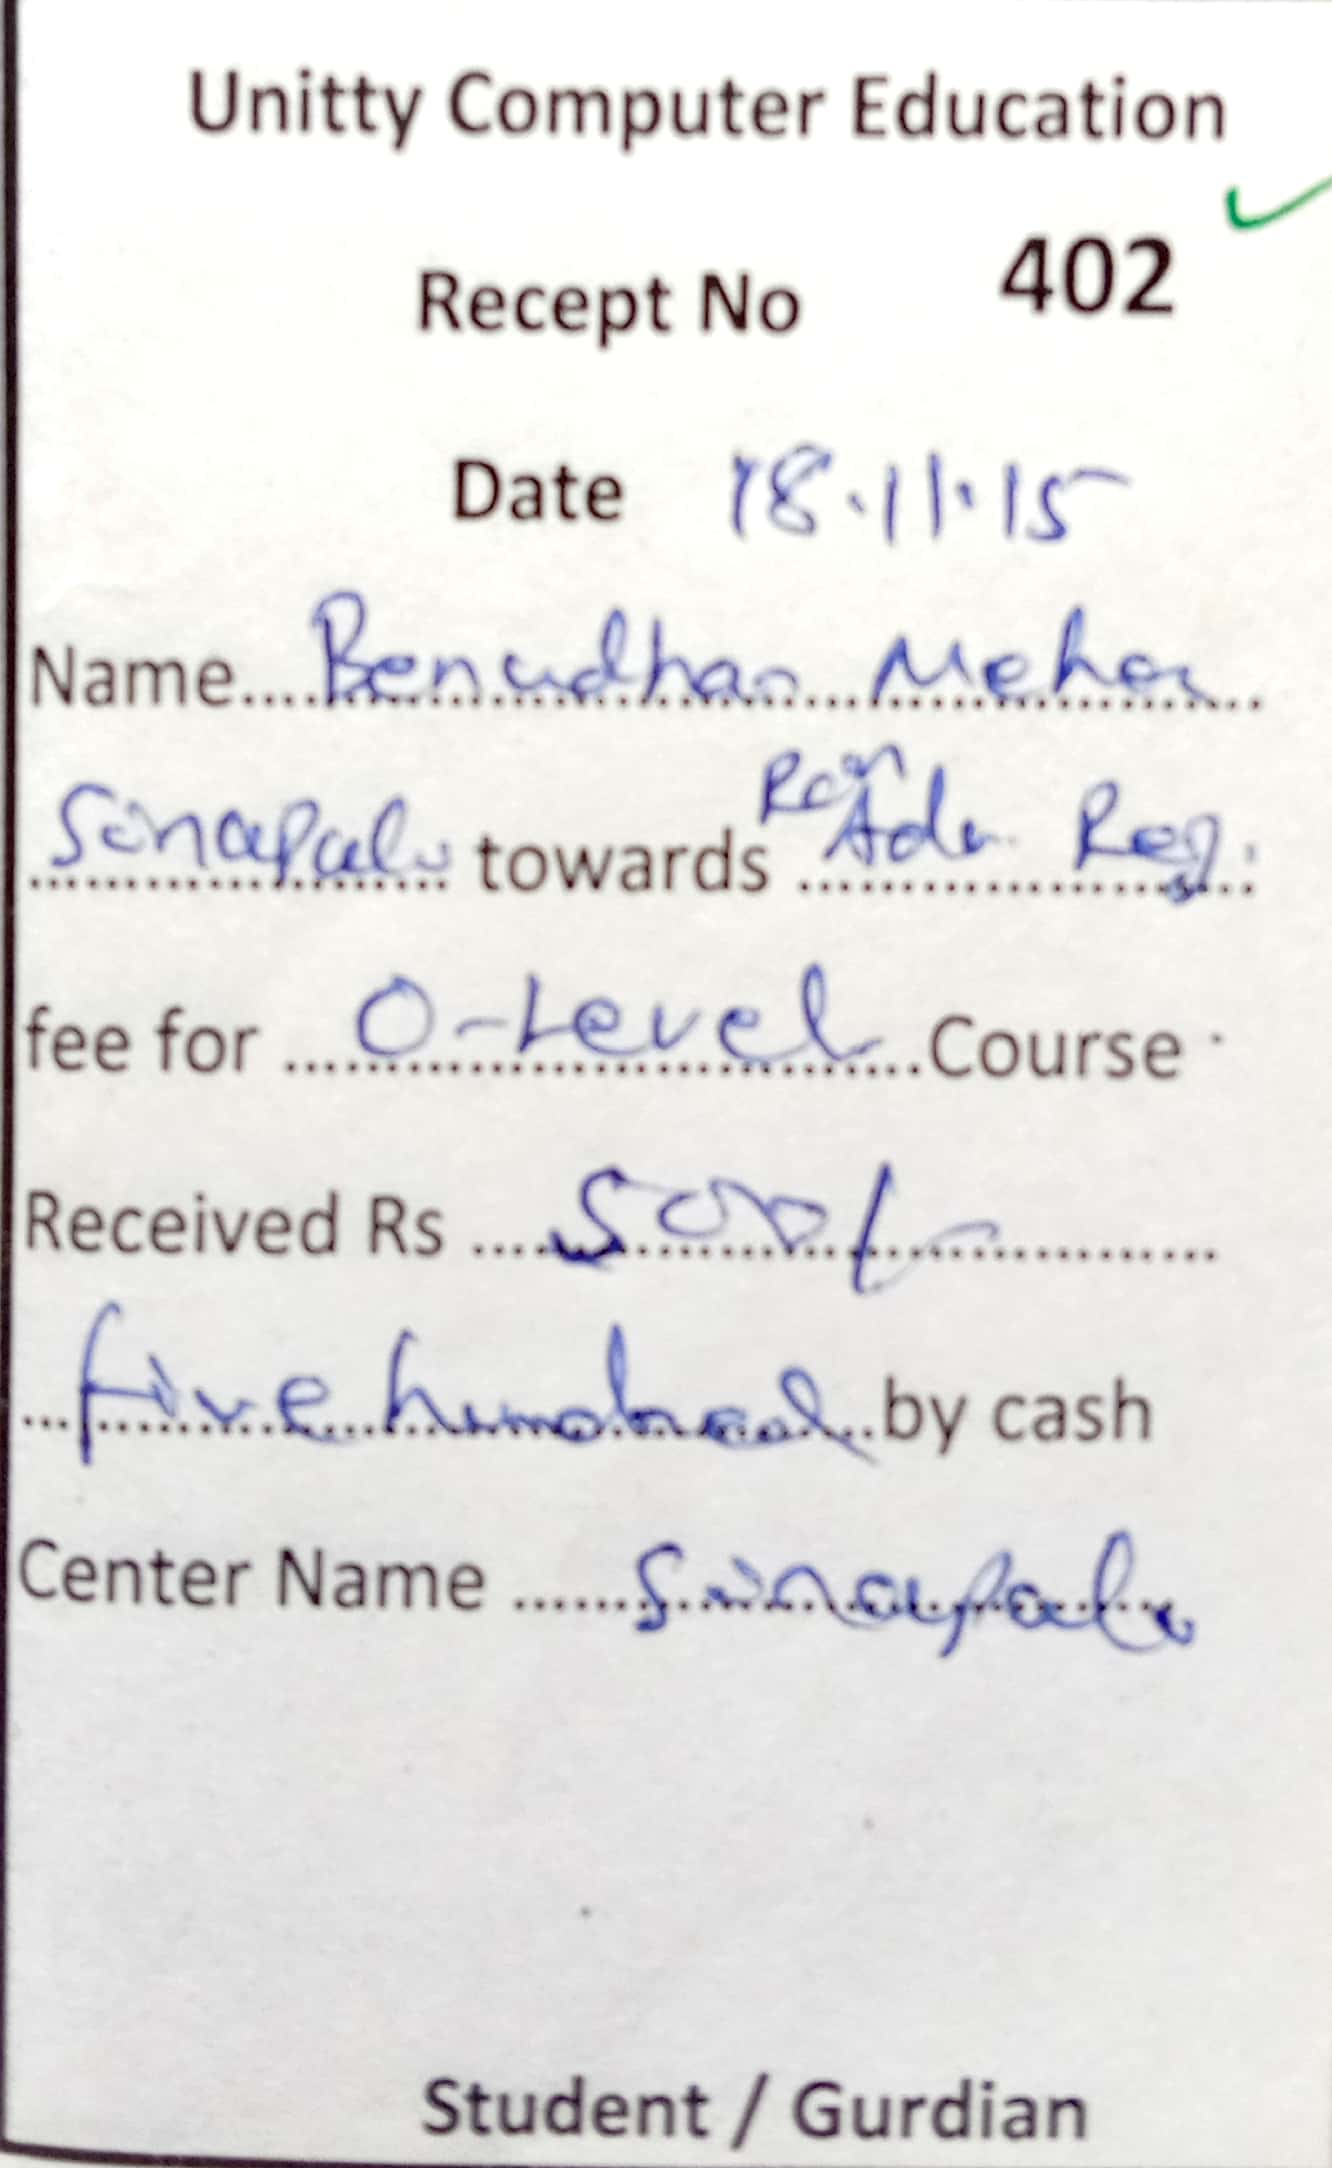 Unitty Computer Education
Recept No 402
Date 18.11.15
Name.... Benudhar Meher
Sinapali towards Adm. Reg.
fee for O-Level Course
Received Rs 500/-
five hundred by cash
Center Name Sinapali
Student / Gurdian